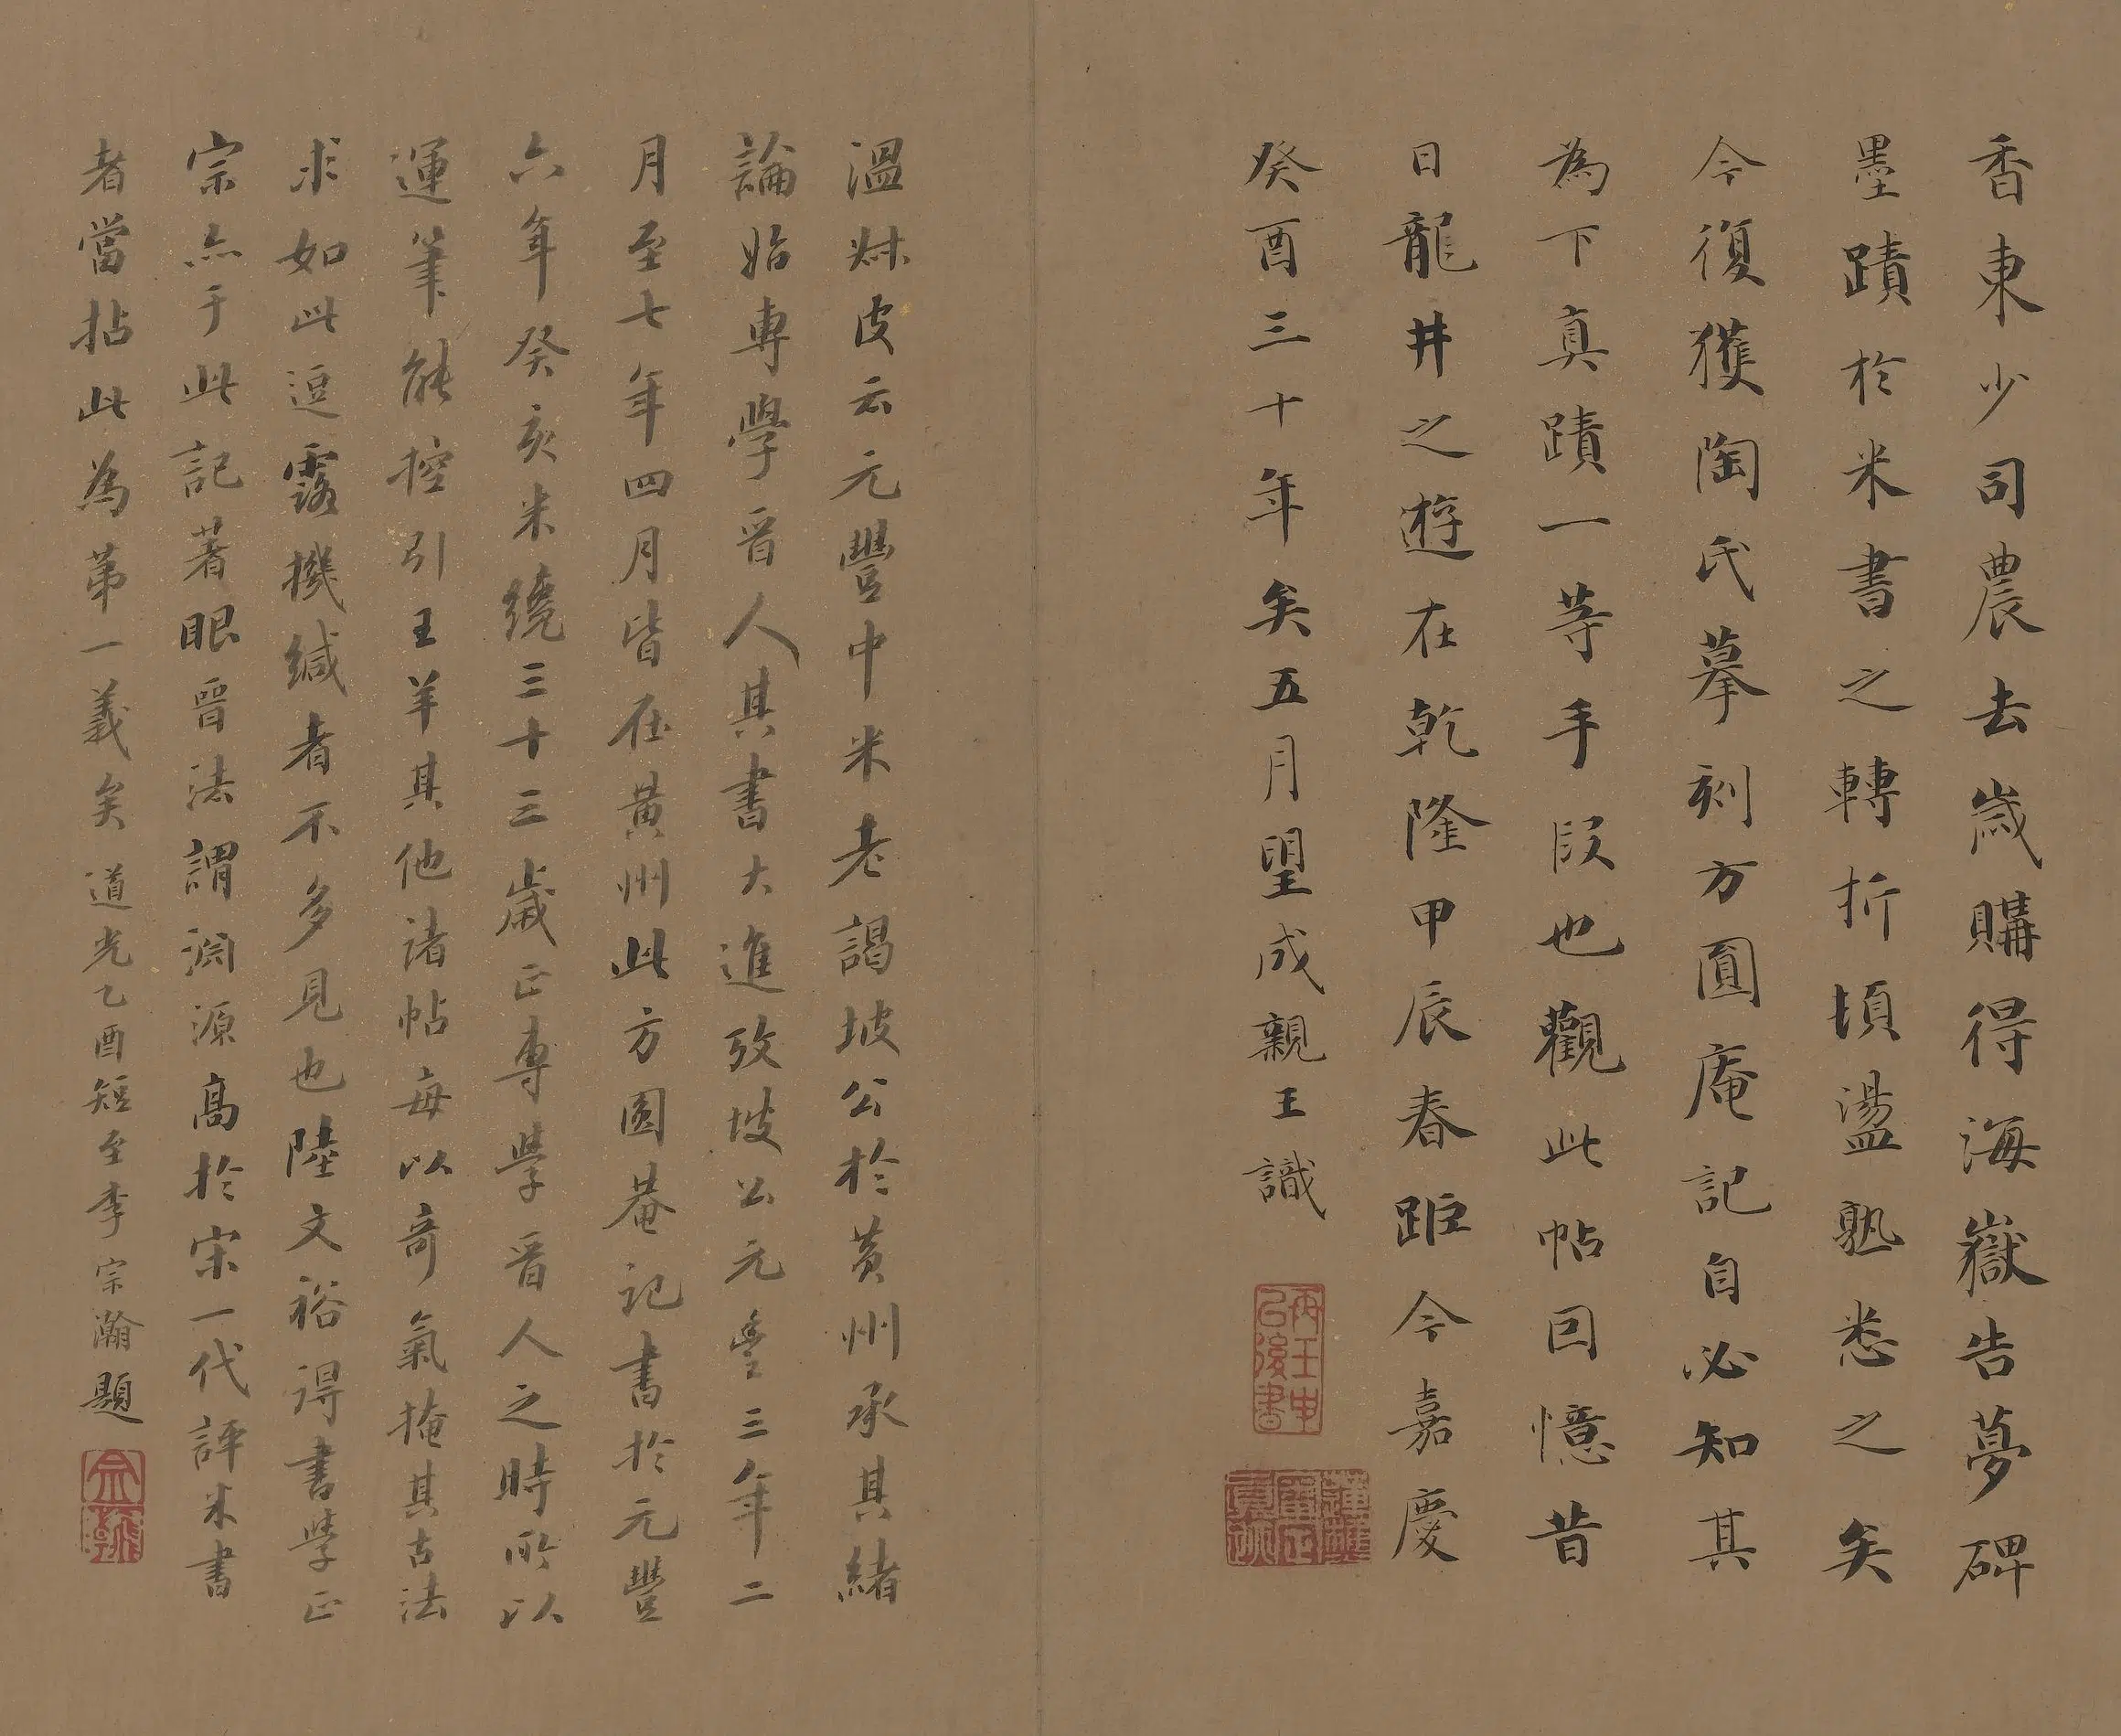 香東少司農去歲購得海嶽告夢碑
墨蹟於米書之轉折頓盪熟悉之矣
今復獲陶氏摹刻方圓庵記自必知其
為下真蹟一等手段也觀此帖回憶昔
日龍井之遊在乾隆甲辰春距今嘉慶
癸酉三十年矣五月望成親王識
溫叔皮云元豐中米老謁坡公於黃州承其緒
論始專學晉人其書大進攷坡公元豐三年二
月至七年四月皆在黃州此方圓菴記書於元豐
六年癸亥米纔三十三歲正專學晉人之時所以
運筆能控引王羊其他諸帖每以奇氣掩其古法
求如此逗露機緘者不多見也陸文裕得書學正
宗亦于此記著眼晉法謂淵源高於宋一代評米書
者當拈此為第一義矣道光乙酉短至李宗瀚題